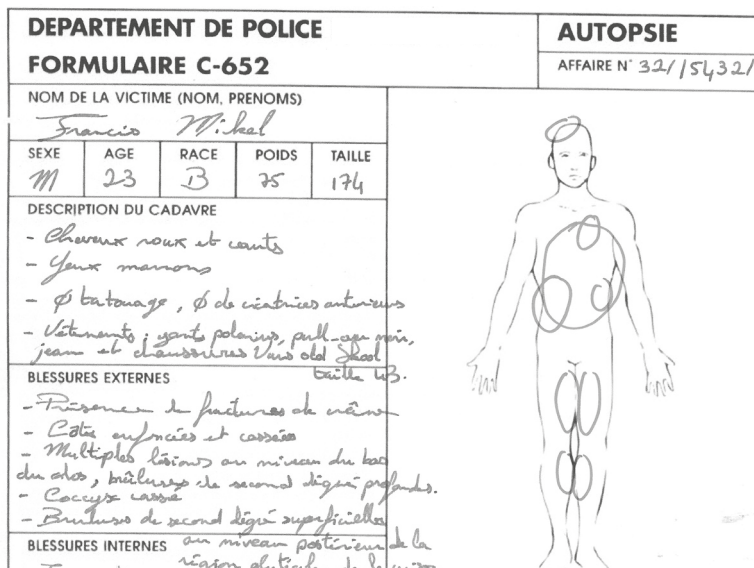 DEPARTEMENT DE POLICE
FORMULAIRE C-652
AUTOPSIE
AFFAIRE N° 32//5432/
NOM DE LA VICTIME (NOM, PRENOMS)
Francis Mikel
SEXE AGE RACE POIDS TAILLE
M 23 B 75 174
DESCRIPTION DU CADAVRE
- Cheveux roux et courts
- Yeux marrons
- Ø tatouage, Ø de cicatrices anterieures
- Vêtements : gants polaires, pull-over noir,
jean et chaussures Vans old Skool
taille 43.
BLESSURES EXTERNES
- Présence de fractures de crâne
- Côtes enfoncées et cassées
- Multiples lésions au niveau du bas
du dos, brûlures de second dégré profondes.
- Coccyx cassé
- Brulures de second dégré superficielles
au niveau postérieur de la
BLESSURES INTERNES
région de la